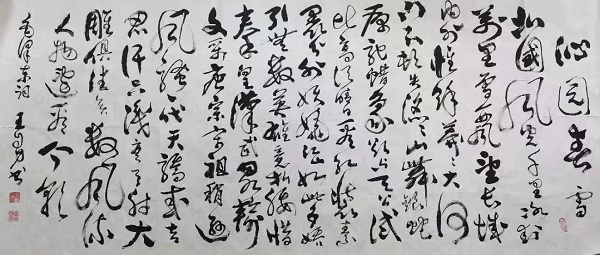 沁园春 雪
北国风光千里冰封
万里雪飘望长城
内外惟余莽莽大河
上下顿失滔滔山舞银蛇
原驰蜡象欲与天公试
比高须晴日看红装素
裹分外妖娆江山如此多娇
引无数英雄竞折腰惜
秦皇汉武略输
文采唐宗宋祖稍逊
风骚一代天骄成吉
思汗只识弯弓射大
雕俱往矣数风流
人物还看今朝
毛泽东词